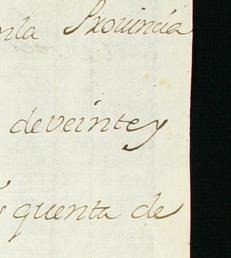 enla Provincia
deveinte y
quenta de